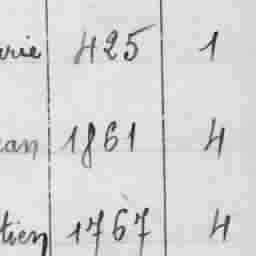 rie 425 1
ean 1861 4
tien 1767 4